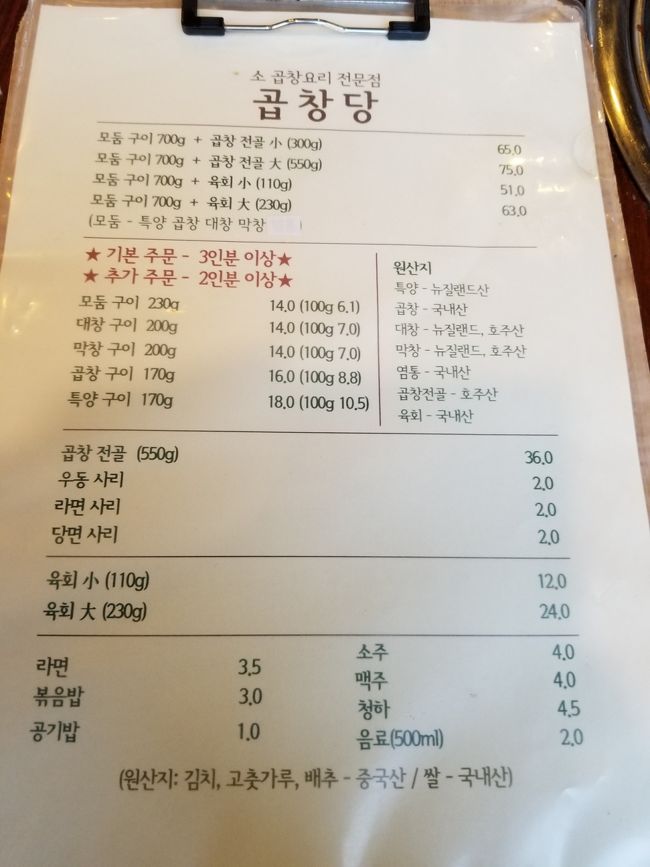 소 곱창요리 전문점
곱창당
모둠 구이 700g + 곱창 전골 小 (300g) 65.0
모둠 구이 700g + 곱창 전골 大 (550g) 75.0
모둠 구이 700g + 육회 小 (110g) 51.0
모둠 구이 700g + 육회 大 (230g) 63.0
(모둠 - 특양 곱창 대창 막창 )
★ 기본 주문 - 3인분 이상★
★ 추가 주문 - 2인분 이상★
모둠 구이 230g 14.0 (100g 6.1)
대창 구이 200g 14.0 (100g 7.0)
막창 구이 200g 14.0 (100g 7.0)
곱창 구이 170g 16.0 (100g 8.8)
특양 구이 170g 18.0 (100g 10.5)
원산지
특양 - 뉴질랜드산
곱창 - 국내산
대창 - 뉴질랜드, 호주산
막창 - 뉴질랜드, 호주산
염통 - 국내산
곱창전골 - 호주산
육회 - 국내산
곱창 전골 (550g) 36.0
우동 사리 2.0
라면 사리 2.0
당면 사리 2.0
육회 小 (110g) 12.0
육회 大 (230g) 24.0
라면 3.5
볶음밥 3.0
공기밥 1.0
소주 4.0
맥주 4.0
청하 4.5
음료(500ml) 2.0
(원산지: 김치, 고춧가루, 배추 - 중국산 / 쌀 - 국내산)